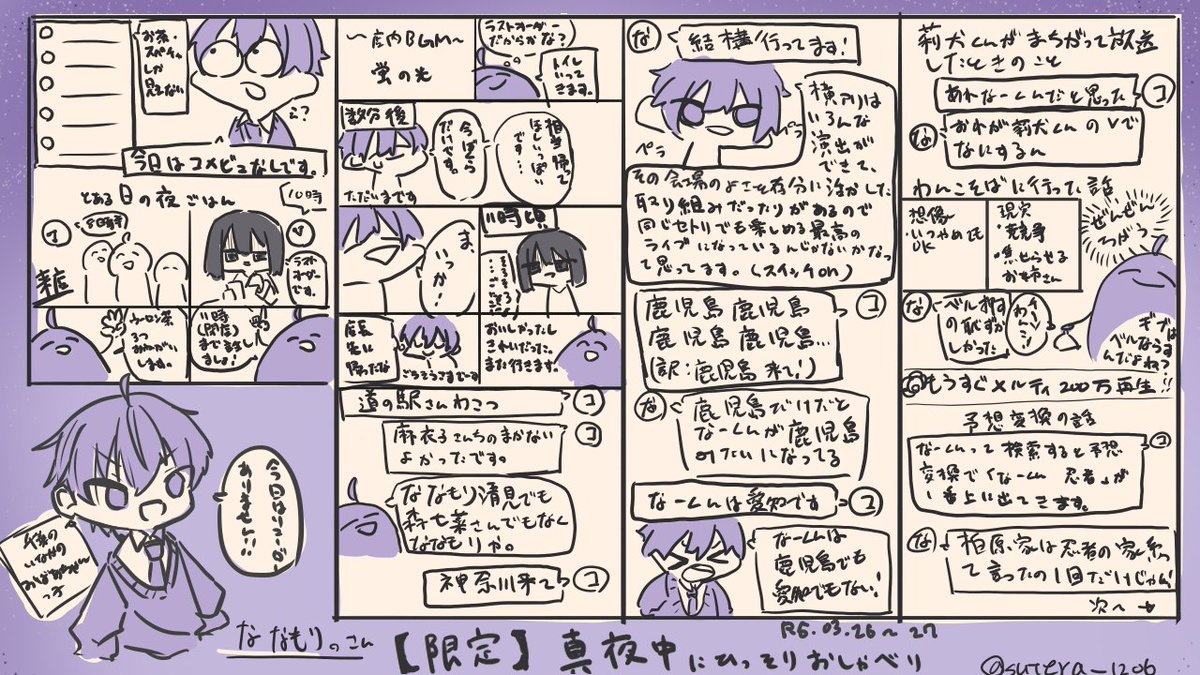 お茶・
スパチャ
しか
見えない
今日はコメビュなしです。
とある日の夜ごはん
10時
ラスト
オーダー
です。
ウーロン茶
3つ
おねがい
します。
11時
(閉店)
まで話し
ましょ!
〜店内BGM〜
蛍の光
ラストオーダー
だからかな?
トイレ
いって
きます。
数分後
ただいまです
相当帰って
ほしいっぽい
です…
今ぼくら
だけです。
11時頃
ま、
いっか…
おいしかったし
きれいだった。
また行きます。
ごちそうさまでーす
道の駅さんわこつ
コ
麻衣子さんちのまかない
よかったです。
コ
ななもり清見でも
森七菜さんでもなく
ななもりか。
神奈川来て
コ
な
結構行ってます!
ペラ
ペラ
横アリは
いろんな
演出が
できて、
その会場のよさを存分に活かした
取り組みだったりがあるので
同じセトリでも楽しめる最高の
ライブになっているんじゃないかな
って思ってます。(スイッチon)
鹿児島 鹿児島
鹿児島 鹿児島…
(訳:鹿児島来て!)
コ
な
鹿児島だけだと
なーくんが鹿児島
みたいになってる
なーくんは愛知です
コ
なーくんは
鹿児島でも
愛知でもない!
莉犬くんがまちがって放送
したときのこと
あれなーくんだと思った
コ
な
おれが莉犬くんのVで
なにするん
わんこそばに行った話
想像
・いつやめても
OK
現実
・競争
・焦らせる
お姉さん
ぜんぜん
ちがう
な
ベル押す
の恥ずか
しかった
ギブは
ベルならす
んだよね?
もうすぐメルティ200万再生!!
予想変換の話
なーくんって検索すると予想
変換で「なーくん 忍者」が
1番上に出てきます。
コ
な
柏原家は忍者の家系っ
て言ったの1回だけじゃん!
次へ→
今日はリレーが
ありません!!
ななもりっこん
【限定】真夜中にひっそりおしゃべり
R6.03.26〜27
@sutera_1206